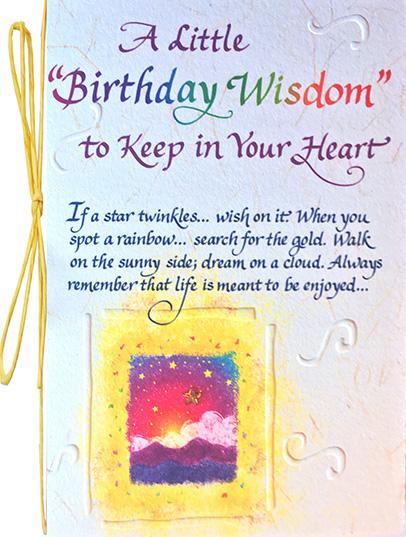 A Little
"Birthday Wisdom"
to Keep in Your Heart
If a star twinkles... wish on it. When you
spot a rainbow... search for the gold. Walk
on the sunny side; dream on a cloud. Always
remember that life is meant to be enjoyed...